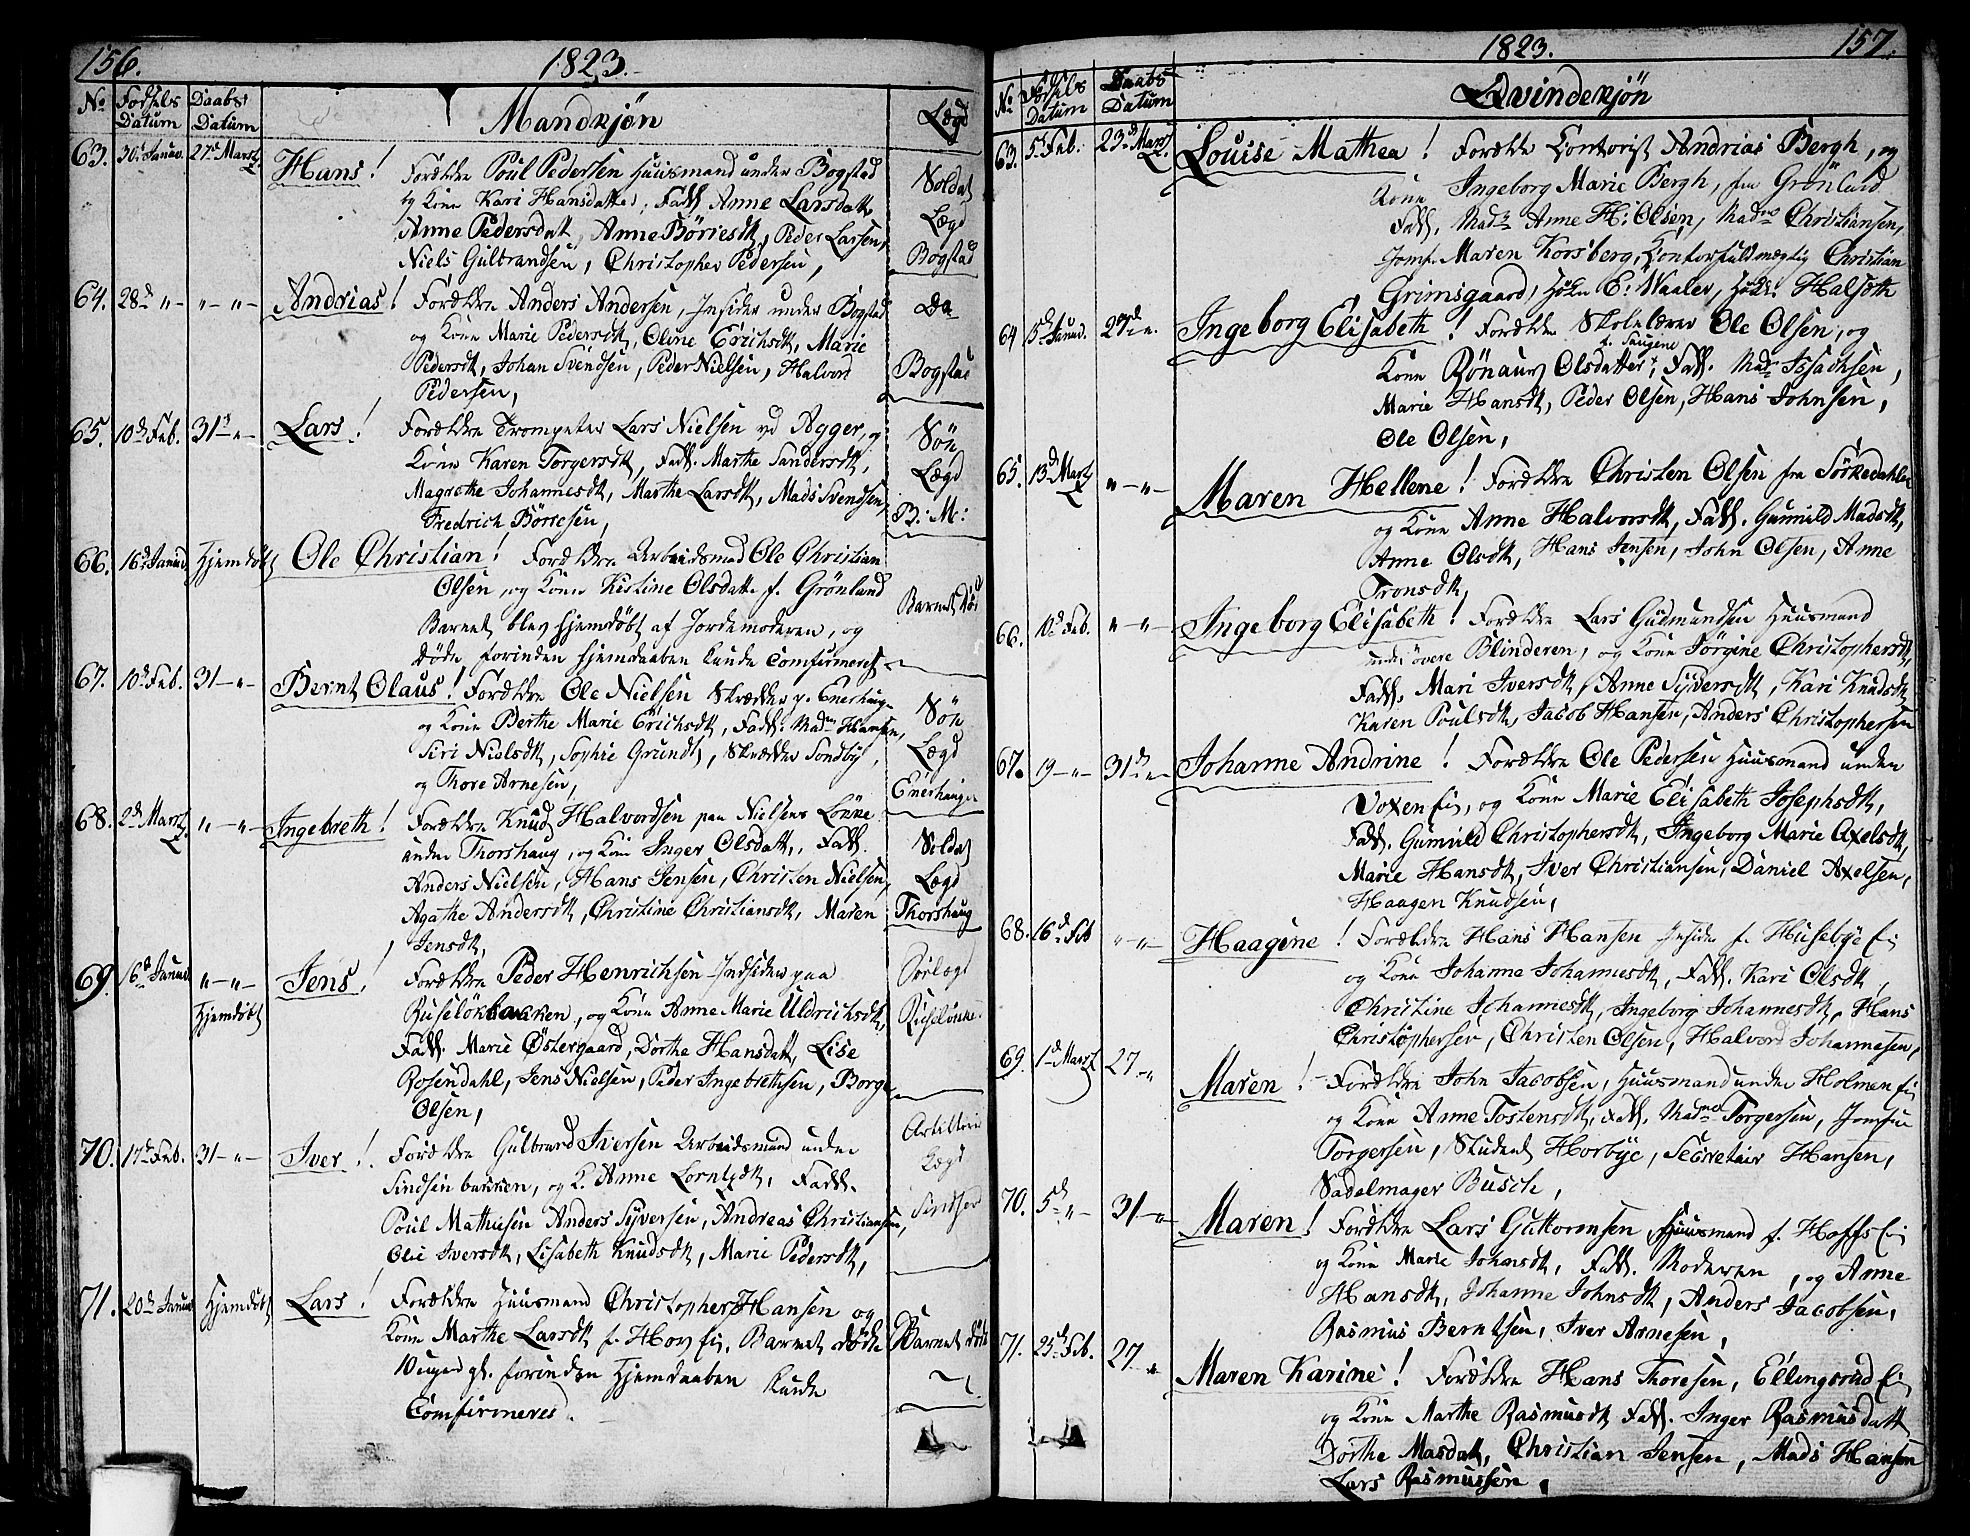 156.
1823.
No Fødsels Datum Daabs Datum
Mandkjön
Lægd
63. 30t Januar. 27d Marts Hans! Forældre Poul Pedersen Huusmand under Bogstad
og Kone Kari Hansdatter, Fadd. Anne Larsdatt
Anne Pedersdatt, Anne Börresdt, Peder Larsen,
Niels Gulbrandsen, Christopher Pedersen,
Soldat
Lægd
Bogstad
64. 28d " - " - " - Andrias! Forældre Anders Andersen, Insider under Bogstad
og Kone Marie Pedersdt, Oline Erichsdt, Marie
Pedersdt, Johan Svendsen, Peder Nielsen, Halvord
Pedersen,
Do
Bogstad
65. 10d Feb. 31t - " - Lars! Forældre Trompeter Lars Nielsen vd Agger, og
Kone Karen Torgersdt, Fadd. Marthe Sandersdt,
Magrethe Johannesdt, Marthe Larsdt, Mads Svendsen,
Fredrich Börresen,
Sön
Lægd
B: M:
66. 16d Januar Hjemdöbt Ole Christian! Forældre Arbeidsmand Ole Christian
Olsen, og Kone Kistine Olsdatt. f. Grönland
Barnet blev hjemdöbt af Jordemoderen, og
döde, forinden hjemdaaben kunde Comfirmeres
Barnet död
67. 10d Feb. 31 - " - Bernt Olaus! Forældre Ole Nielsen Skrædder p. Enerhaugen
og Kone Berthe Marie Erichsdt, Fadd. Madm Hansen,
Siri Nielsdt, Sophie Grundt, Skrædder Sondby,
og Thore Arnesen,
Sön
Lægd
Enerhaugen
68. 2d Marts " - " - Ingebreth! Forældre Knud Halvordsen paa Nielsens Lökke
under Thorshaug, og Kone Inger Olsdatt., Fadd.
Anders Nielsen, Hans Jensen, Christen Nielsen,
Agathe Andersdt, Christine Christiansdt, Maren
Jensdt,
Soldat
Lægd
Thorshaug
69. 16d Januar " - " - Hjemdöbt Jens! Forældre Peder Henrichsen Indsider paa
Ruselökbakken, og Kone Anne Marie Uldrichsdt,
Fadd. Marie Østergaard, Dorthe Hansdatt, Lise
Rosendahl, Jens Nielsen, Peder Ingebrethsen, Borge
Olsen,
Sölægd
70. 17d Feb. 31 - " - Iver! Forældre Gulbrand Iversen Arbeidsmand under
Sindsenbakken, og K. Anne Lorntzdt, Fadd.
Poul Mathiesen Anders Syversen, Andreas Christiansen,
Olie Iversdt, Lisabeth Knudsdt, Marie Pedersdt,
Artilleri
Lægd
Sindsen
71. 20d Januar Hjemdöbt Lars! Forældre Huusmand Christopher Hansen og
Kone Marthe Larsdt f. Hov Ei, Barnet döde
10 uger gl. forinden Hjemdaaben kunde
Comfirmeres.
Barnet död
1823.
157.
No Fødsels Datum Daabs Datum
Qvindekjön
63. 5t Feb. 23d Marts Louise Mathea! Forældre Contorist Andrias Bergh, og
Kone Ingeborg Marie Bergh, fra Grönland
Fadd. Madm Anne H: Olsen, Madme Christiansen,
Jomf. Maren Korsberg, Contorfuldmægtig Christian
Grimsgaard, E: Waaler, Halseth
64 5d Januar. 27d - " - Ingeborg Elisabeth! Forældre Skolelærer Ole Olsen, og
f. Saugene
Kone Rönaug Olsdatter, Fadd. Madm Issachsen,
Marie Hansdt, Peder Olsen, Hans Johnsen,
Ole Olsen,
65. 13d Marts " - " - Maren Hellene! Forældre Christen Olsen fra Sörkedahlen
og Kone Anne Halvorsdt, Fadd. Gunnild Madsdt,
Anne Olsdt, Hans Jensen, John Olsen, Anne
Tronsdt,
66. 10d Feb. " - " - Ingeborg Elisabeth! Forældre Lars Gudmundsen Huusmand
under övere Blinderen, og Kone Jörgine Christophersdt,
Fadd. Mari Iversdt, Anne Syversdt, Kari Knudsdt,
Karen Poulsdt, Jacob Hansen, Anders Christophersen
67. 19 - " - 31d - " - Johanne Andrine! Forældre Ole Pedersen Huusmand under
Voxen Ei, og Kone Marie Elisabeth Josephsdt,
Fadd. Gunnild Christophersdt, Ingeborg Marie Axelsdt,
Marie Hansdt, Iver Christiansen, Daniel Axelsen,
Haagen Knudsen,
68. 16d Feb " - " - Haagine! Forældre Hans Hansen Insider f. Husebye Ei
og Kone Johanne Johannesdt, Fadd. Kari Olsdt,
Christine Johannesdt, Ingeborg Johannesdt, Hans
Christophersen, Christen Olsen, Halvord Johannesen,
69. 1d Marts 27 - " Maren! Forældre John Jacobsen, Huusmand under Holmen Ei
og Kone Anne Tostensdt, Fadd. Madme Torgersen, Jomfru
Torgersen, Student Horbye, Secretair Hansen,
Sadelmager Busch,
70. 5d " - 31 - " Maren! Forældre Lars Guttormsen Huusmand f. Hoffs Ei
og Kone Marie Johansdt, Fadd. Moderen, og Anne
Hansdt, Johanne Johnsdt, Anders Jacobsen,
Rasmus Berntsen, Iver Arnesen,
71. 25d Feb. 27 - " Maren Karine! Forældre Hans Thoresen, Ellingsrud Ei
og Kone Marthe Rasmusdt Fadd. Inger Rasmusdatt
Dorthe Masdatt, Christian Jensen, Mads Hansen
Lars Rasmussen,